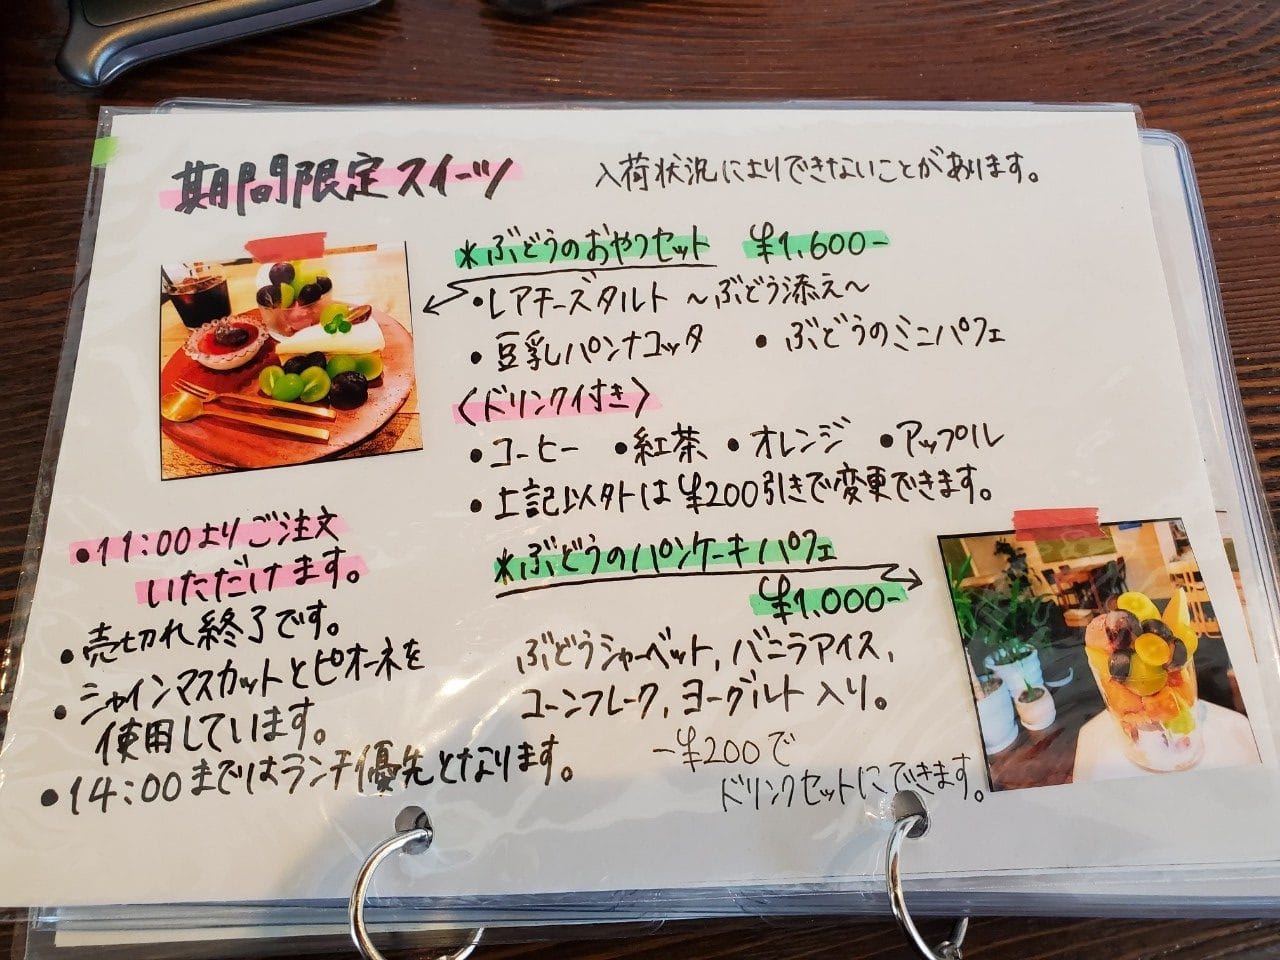 期間限定スイーツ
入荷状況によりできないことがあります。
*ぶどうのおやつセット ¥1,600-
・レアチーズタルト ~ぶどう添え~
・豆乳パンナコッタ ・ぶどうのミニパフェ
〈ドリンク付き〉
・コーヒー ・紅茶 ・オレンジ ・アップル
・上記以外は¥200引きで変更できます。
・11:00よりご注文
いただけます。
・売切れ終了です。
・シャインマスカットとピオーネを
使用しています。
・14:00まではランチ優先となります。
*ぶどうのパンケーキパフェ
¥1,000-
ぶどうシャーベット,バニラアイス,
コーンフレーク,ヨーグルト入り。
-¥200で
ドリンクセットにできます。